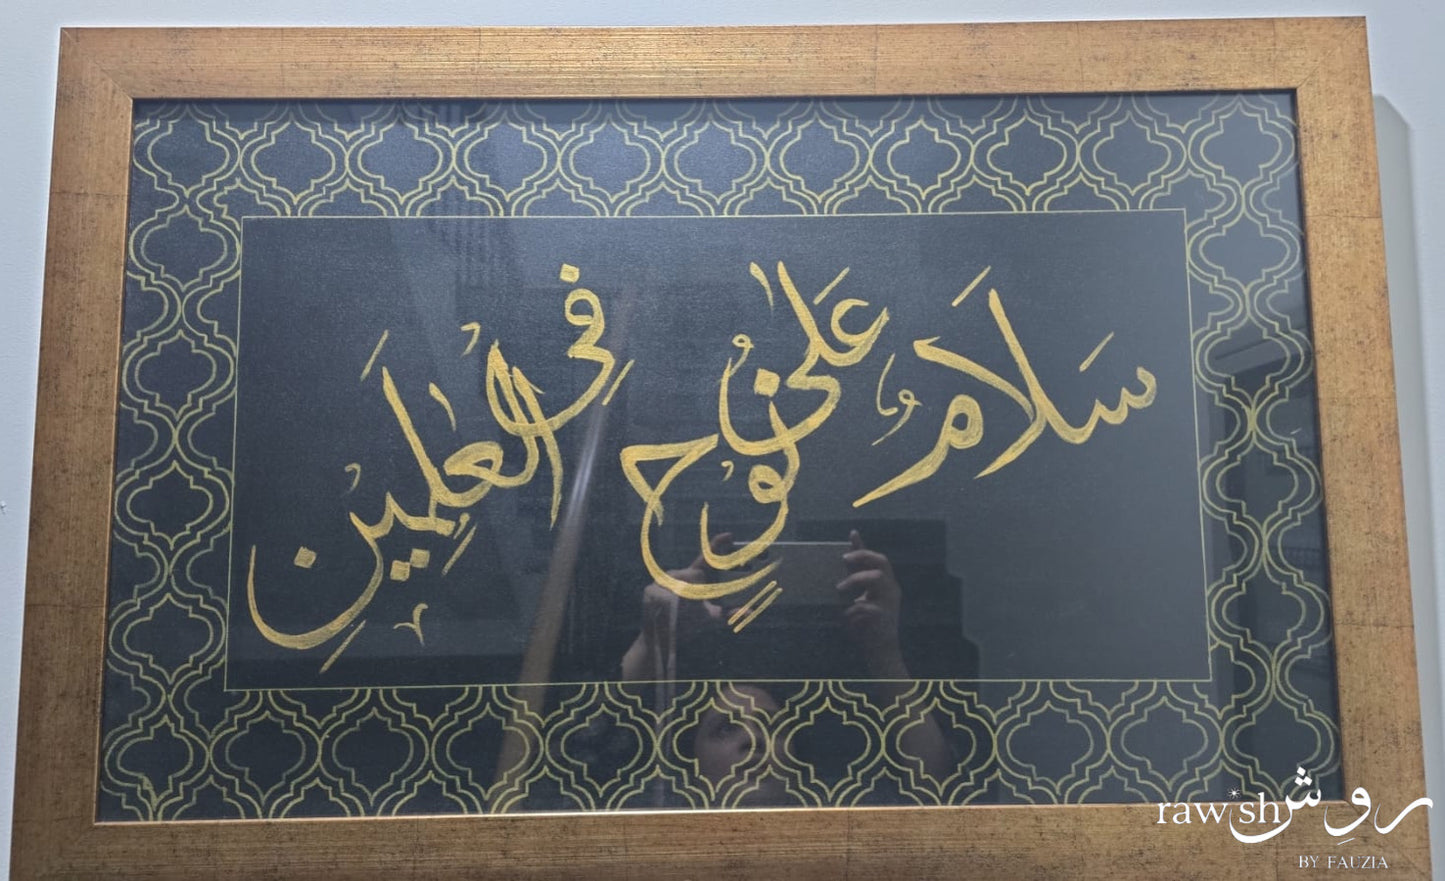 سَلَامٌ عَلَىٰ نُوْحٍ فِي الْعٰلَمِيْنَ
rawish روِش
BY FAUZIA